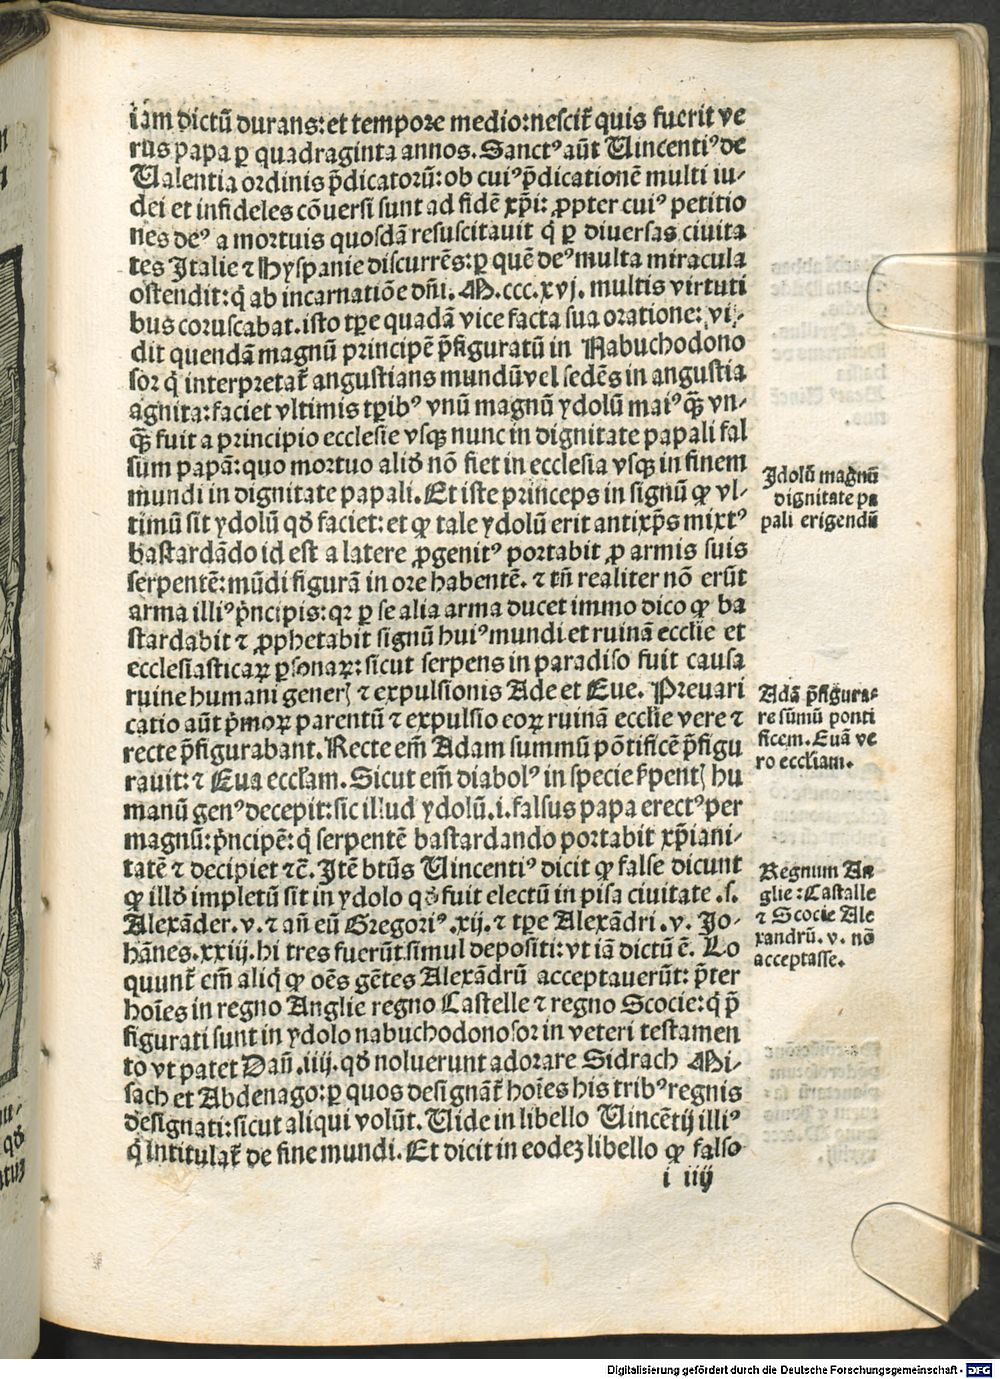 iam dictū durans: et tempore medio: nescit̃ quis fuerit ve
rus papa ꝑ quadraginta annos. Sanctꝰ aūt Uincentiꝰ de
Ualentia ordinis p̄dicatorū: ob cuiꝰ p̄dicationē multi iu-
dei et infideles cōuersi sunt ad fidē xp̄i: ꝓpter cuiꝰ petitio
nes deꝰ a mortuis quosdā resuscitauit q̇ ꝑ diuersas ciuita
tes Italie ⁊ Hyspanie discurrēs: ꝑ quē deꝰ multa miracula
ostendit: q̇ ab incarnatiōe dn̄i. M.ccc.xvj. multis virtuti
bus coruscabat. isto tp̄e quadā vice facta sua oratione: vi-
dit quendā magnū principē p̄figuratū in Nabuchodono
sor q̇ interpretat̃ angustians mundū vel sedēs in angustia
agnita: faciet vltimis tp̄ibꝰ vnū magnū ydolū maiꝰ qꝫ̄ vn-
qꝫ̄ fuit a principio ecclesie vsqꝫ nunc in dignitate papali fal
sum papā: quo mortuo aliꝰ nō fiet in ecclesia vsqꝫ in finem
mundi in dignitate papali. Et iste princeps in signū ꝙ vl-
timū sit ydolū qđ faciet: et ꝙ tale ydolū erit antixp̄s mixtꝰ
bastardādo id est a latere ꝓgenitꝰ portabit ꝓ armis suis
serpentē: mūdi figurā in ore habentē. ⁊ tn̄ realiter nō erūt
arma illiꝰ p̄ncipis: qꝛ ꝑ se alia arma ducet immo dico ꝙ ba
stardabit ⁊ ꝓphetabit signū huiꝰ mundi et ruinā ecclie et
ecclesiasticaꝝ ꝑsonaꝝ: sicut serpens in paradiso fuit causa
ruine humani generꝭ ⁊ expulsionis Ade et Eue. Preuari
catio aūt p̄moꝝ parentū ⁊ expulsio eoꝝ ruinā ecclie vere ⁊
recte p̄figurabant. Recte em̄ Adam summū pōtificē p̄figu
rauit: ⁊ Eua eccl̄am. Sicut em̄ diabolꝰ in specie s̃pentꝭ hu
manū genꝰ decepit: sic illud ydolū .i. falsus papa erectꝰ per
magnū: p̄ncipē: q̇ serpentē bastardando portabit xp̄iani-
tatē ⁊ decipiet ⁊c̄. Itē bt̄us Uincentiꝰ dicit ꝙ false dicunt
ꝙ illđ impletū sit in ydolo qđ fuit electū in pisa ciuitate .s.
Alexāder .v. ⁊ an̄ eū Gregoriꝰ .xij. ⁊ tp̄e Alexādri .v. Jo-
hānes .xxiij. hi tres fuerūt simul depositi: vt iā dictū ē. Lo
quunt̃ em̄ aliq̇ ꝙ oēs gētes Alexādrū acceptauerūt: p̄ter
hoīes in regno Anglie regno Castelle ⁊ regno Scocie: q̇ p̄
figurati sunt in ydolo nabuchodonosor in veteri testamen
to vt patet Dañ .iiij. qđ noluerunt adorare Sidrach Mi-
sach et Abdenago: ꝑ quos designāt̃ hoīes his tribꝰ regnis
designati: sicut aliqui volūt. Uide in libello Uincētij illiꝰ
q̇ Intitulat̃ de fine mundi. Et dicit in eodeꝫ libello ꝙ falso
i iiij
Idolū magnū
dignitate pa
pali erigendū
Adā p̄figura-
re sūmū ponti
ficem. Euā ve
ro eccl̄iam.
Regnum An
glie: Castalle
⁊ Scocie Ale
xandrū .v. nō
acceptasse.
Digitalisierung gefördert durch die Deutsche Forschungsgemeinschaft - DFG